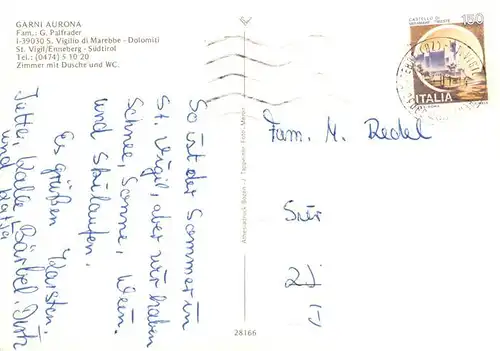 GARNI AURONA
Fam.: G. Palfrader
I-39030 S. Vigilio di Marebbe - Dolomiti
St. Vigil/Enneberg - Südtirol
Tel.: (0474) 5 10 20
Zimmer mit Dusche und WC.
So ist der Sommer in
St. Vigil, aber wir haben
Schnee, Sonne, Wein.
und Skilaufen.
Es grüßen Karsten,
Jutta, Kalle, Bärbel, Dirk
und Katja
Athesiadruck Bozen - J. Tappeiner Foto: Meran
28166
CASTELLO DI
150
ITALIA
Fam. M. Redel